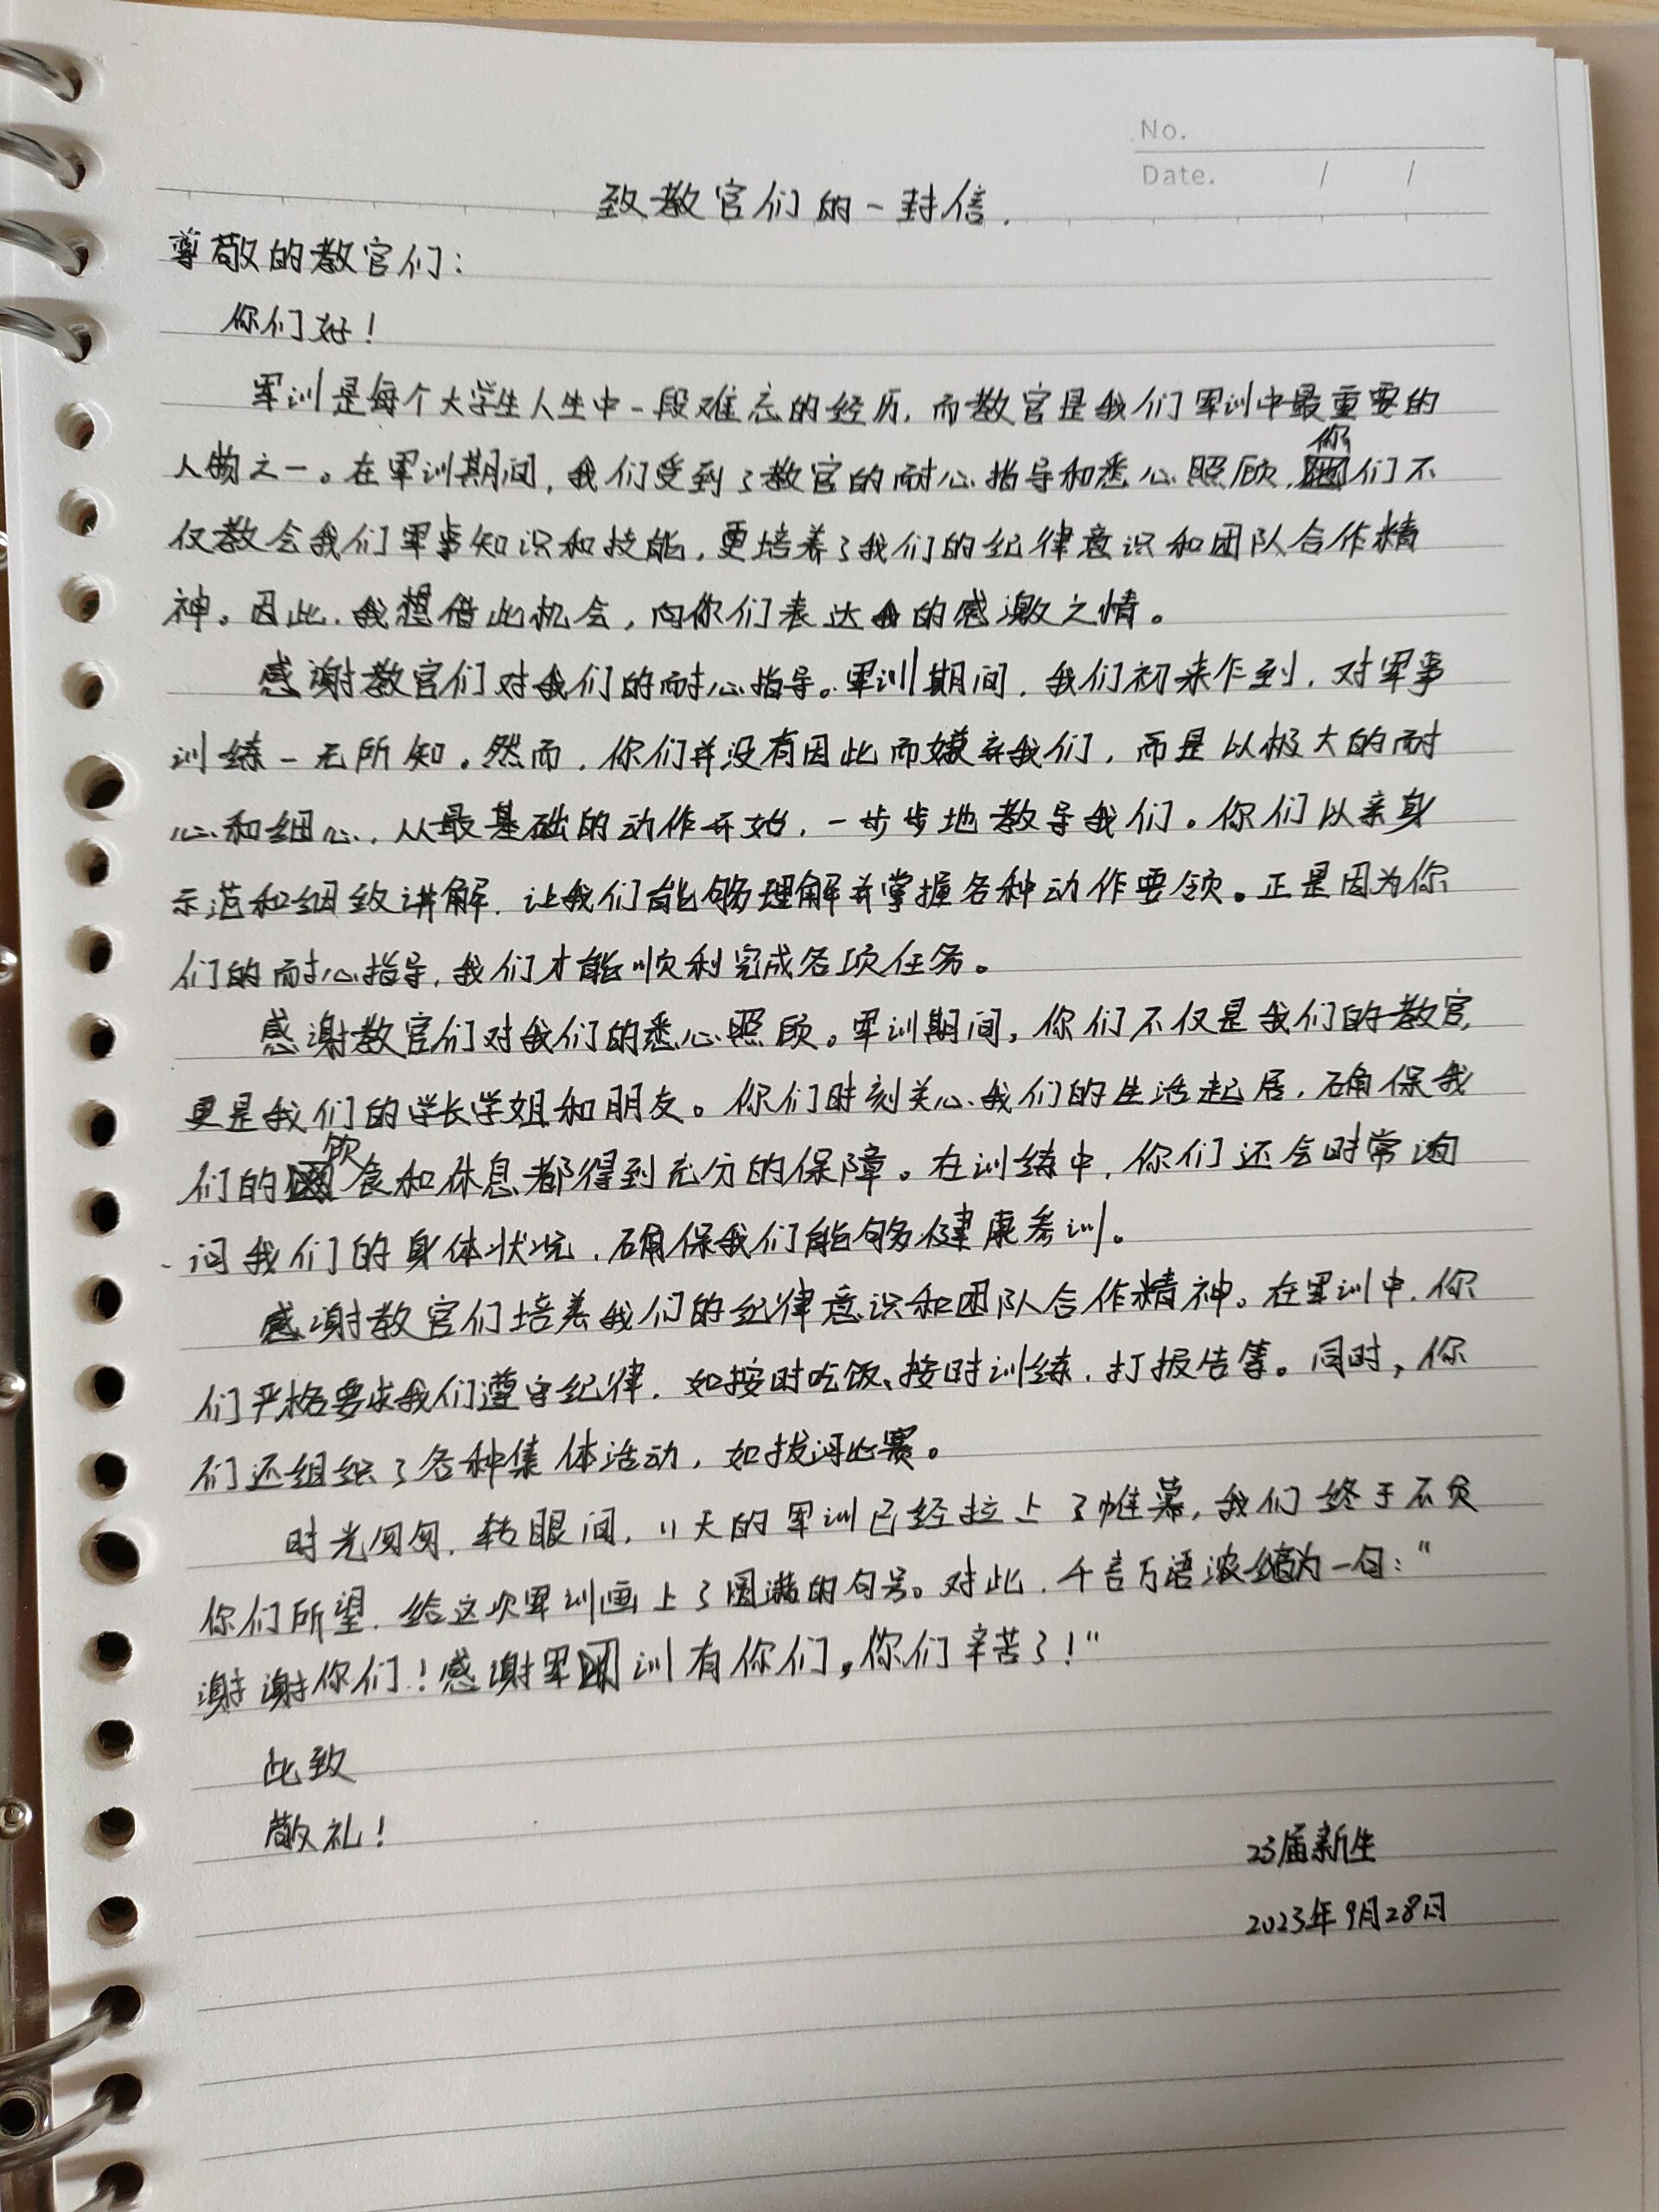 No.
Date. / /
致教官们的一封信.
尊敬的教官们:
你们好!
军训是每个大学生人生中一段难忘的经历,而教官是我们军训中最重要的
人物之一。在军训期间,我们受到了教官的耐心指导和悉心照顾,你们不
仅教会我们军事知识和技能,更培养了我们的纪律意识和团队合作精
神。因此,我想借此机会,向你们表达我的感激之情。
感谢教官们对我们的耐心指导。军训期间,我们初来乍到,对军事
训练一无所知。然而,你们并没有因此而嫌弃我们,而是以极大的耐
心和细心,从最基础的动作开始,一步步地教导我们。你们以亲身
示范和细致讲解,让我们能够理解并掌握各种动作要领。正是因为你
们的耐心指导,我们才能顺利完成各项任务。
感谢教官们对我们的悉心照顾。军训期间,你们不仅是我们的教官,
更是我们的学长学姐和朋友。你们时刻关心我们的生活起居,确保我
们的饮食和休息都得到充分的保障。在训练中,你们还会时常询
问我们的身体状况,确保我们能够健康参训。
感谢教官们培养我们的纪律意识和团队合作精神。在军训中,你
们严格要求我们遵守纪律,如按时吃饭、按时训练,打报告等。同时,你
们还组织了各种集体活动,如拔河比赛。
时光匆匆,转眼间,11天的军训已经拉上了帷幕,我们终于不负
你们所望,给这次军训画上了圆满的句号。对此,千言万语浓缩为一句:“
谢谢你们!感谢军训有你们,你们辛苦了!”
此致
敬礼!
23届新生
2023年9月28日